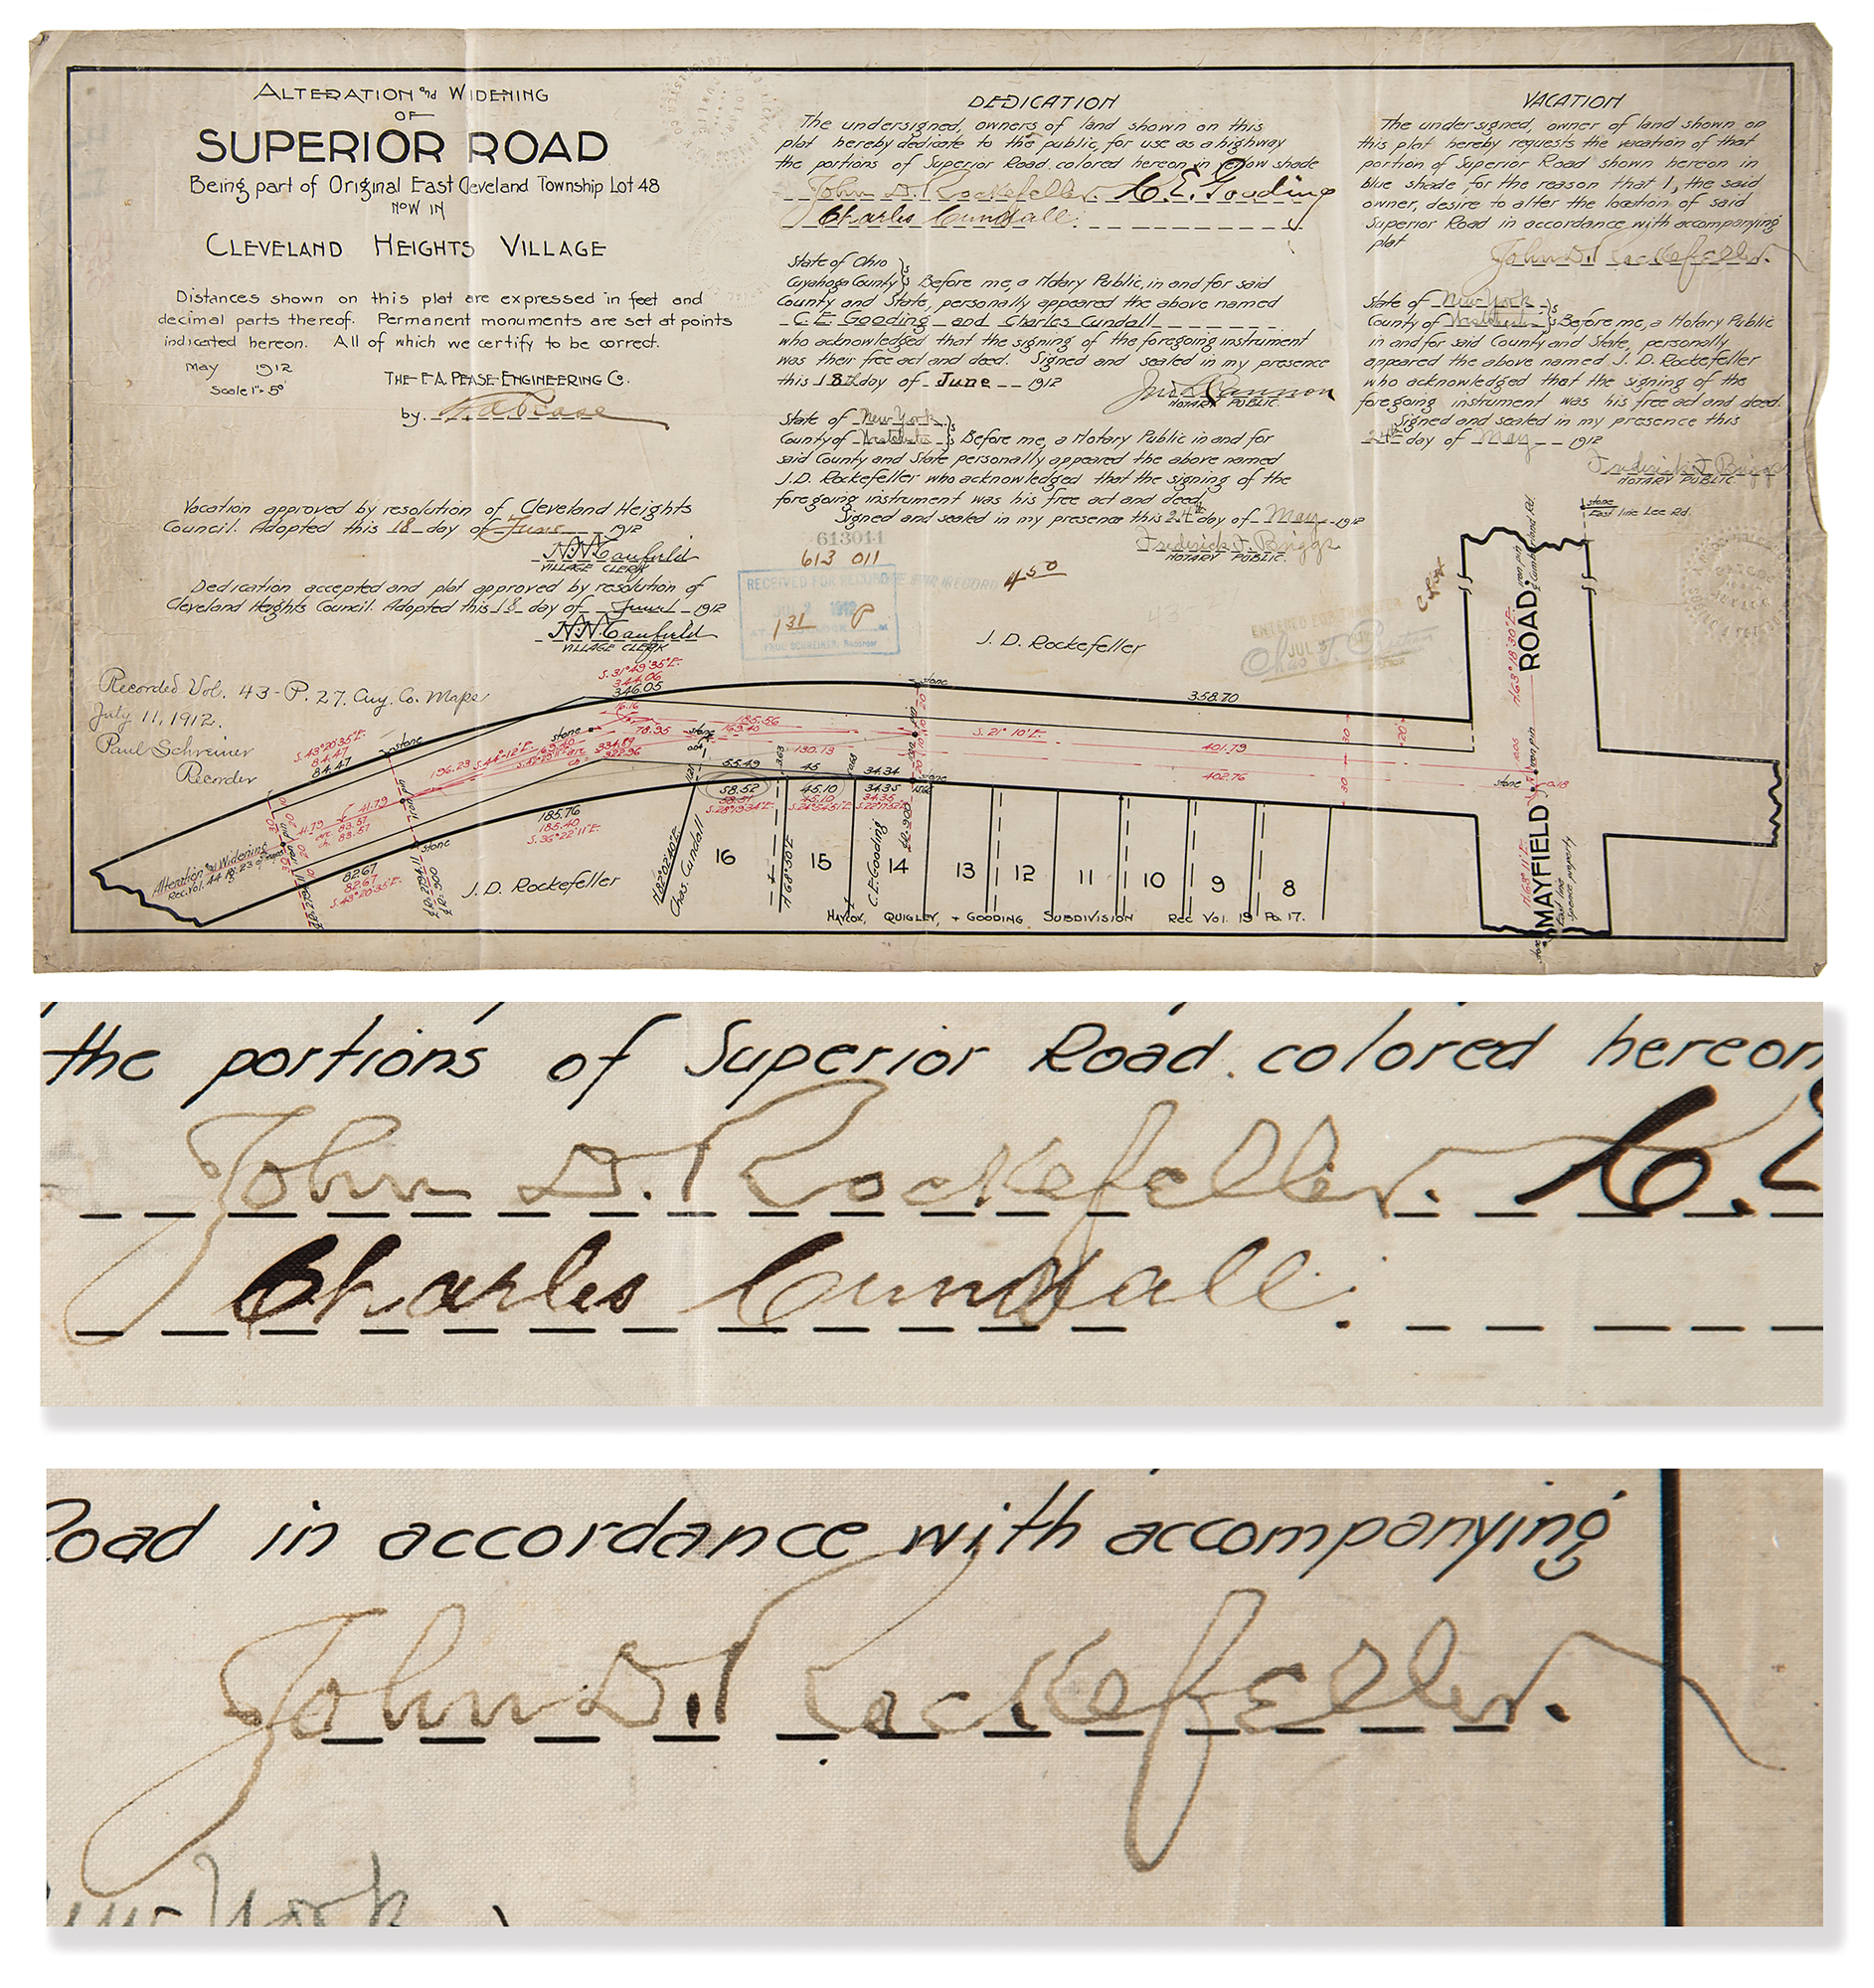 ALTERATION and WIDENING
OF
SUPERIOR ROAD
Being part of Original East Cleveland Township Lot 48
NOW IN
CLEVELAND HEIGHTS VILLAGE
Distances shown on this plat are expressed in feet and
decimal parts thereof. Permanent monuments are set at points
indicated hereon. All of which we certify to be correct.
May 1912
Scale 1"= 50'
THE F.A. PEASE ENGINEERING CO.
by F.A. Pease
Vacation approved by resolution of Cleveland Heights
Council. Adopted this 18 day of June 1912
N.N. Canfield
VILLAGE CLERK
Dedication accepted and plat approved by resolution of
Cleveland Heights Council. Adopted this 18 day of June 1912
N.N. Canfield
VILLAGE CLERK
Recorded Vol. 43 - P. 27. Cuy. Co. Maps
July 11, 1912.
Paul Schreiner
Recorder
DEDICATION
The undersigned, owners of land shown on this
plat hereby dedicate to the public, for use as a highway
the portions of Superior Road colored hereon in yellow shade
John D. Rockefeller. C.E. Gooding
Charles Cundall.
State of Ohio
Cuyahoga County } ss Before me, a Notary Public, in and for said
County and State, personally appeared the above named
C.E. Gooding and Charles Cundall
who acknowledged that the signing of the foregoing instrument
was their free act and deed. Signed and sealed in my presence
this 18th day of June 1912
NOTARY PUBLIC.
State of New York
County of Westchester } ss Before me, a Notary Public in and for
said County and State personally appeared the above named
J.D. Rockefeller who acknowledged that the signing of the
foregoing instrument was his free act and deed.
Signed and sealed in my presence this 24th day of May 1912
Frederick F. Briggs
NOTARY PUBLIC.
613011
613 011
RECEIVED FOR RECORD
PAUL SCHREINER, Recorder
1 31 P
4 50
43
VACATION
The undersigned, owner of land shown on
this plat hereby requests the vacation of that
portion of Superior Road shown hereon in
blue shade, for the reason that I, the said
owner, desire to alter the location of said
Superior Road in accordance with accompanying
plat
John D. Rockefeller.
State of New York
County of Westchester } ss Before me, a Notary Public
in and for said County and State, personally
appeared the above named J. D. Rockefeller
who acknowledged that the signing of the
foregoing instrument was his free act and deed.
Signed and sealed in my presence this
24th day of May 1912
Frederick F. Briggs
NOTARY PUBLIC.
stone
East line Lee Rd.
J. D. Rockefeller
S. 31° 49' 35" E.
344.06
346.05
358.70
S. 21° 10' E.
401.79
402.76
S. 43° 20' 35" E.
84.47
84.47
stone
stone
196.23
78.95
185.56
169.40
130.13
55.49
45
34.34
58.52
45.10
34.35
185.76
185.40
S. 36° 22' 11" E.
82.67
82.67
S. 43° 20' 35" E.
41.79
Alteration and Widening
J. D. Rockefeller
Chas. Cundall
16
15
C.E. Gooding
14
13
12
11
10
9
8
HAYCOX, QUIGLEY, + GOODING SUBDIVISION REC VOL. 19 PG. 17.
MAYFIELD ROAD
stone
iron pin
the portions of Superior Road colored hereon
John D. Rockefeller. C.E
Charles Cundall.
Road in accordance with accompanying
John D. Rockefeller.
New York